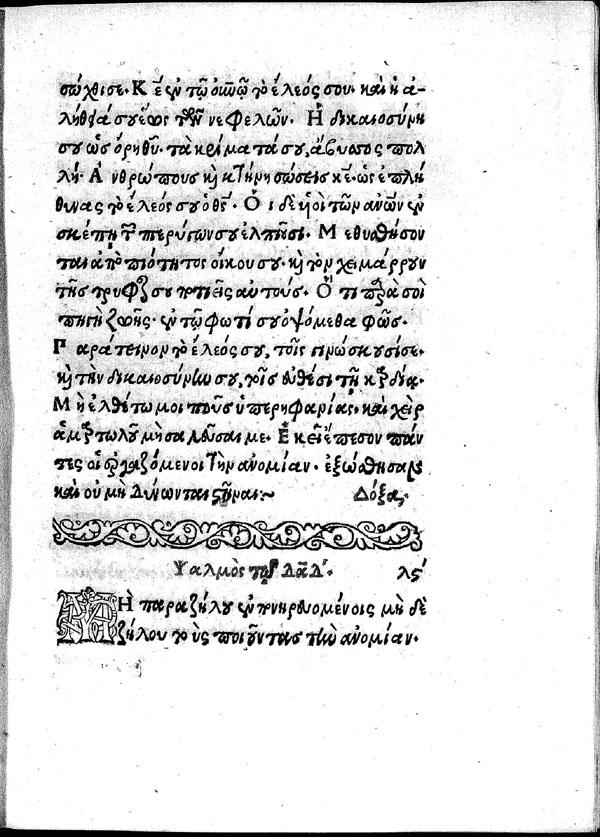 σώχθισε. Κε ἐν τῷ οὐνῷ τὸ ἔλεός σου. καὶ ἡ ἀ-
λήθειά σου ἕως τῶν νεφελῶν. Ἡ δικαιοσύνη
σου ὡς ὄρη θυ. τὰ κρίματά σου, ἄβυσσος πολ
λή. Ἀνθρώπους καὶ κτήνη σώσεις κε. ὡς ἐπλή
θυνας τὸ ἔλεός σου ὁ θς. Οἱ δὲ υἱοὶ τῶν ἀνων ἐν
σκέπῃ τῶν πτερύγων σου ἐλπιοῦσι. Μεθυσθήσον
ται ἀπὸ πιότητος οἴκου σου. καὶ τὸν χειμάρρουν
τῆς τρυφῆς σου ποτιεῖς αὐτούς. Ὅτι παρὰ σοὶ
πηγὴ ζωῆς. ἐν τῷ φωτί σου ὀψόμεθα φῶς.
Παράτεινον τὸ ἔλεός σου, τοῖς γινώσκουσί σε.
καὶ τὴν δικαιοσύνην σου, τοῖς εὐθέσι τῇ καρδίᾳ.
Μὴ ἐλθέτω μοι ποὺς ὑπερηφανίας. καὶ χεὶρ
ἁμαρτωλοῦ μὴ σαλεύσαι με. Ἐκεῖ ἔπεσον πάν
τες οἱ ἐργαζόμενοι τὴν ανομίαν. ἐξώσθησαν
καὶ οὐ μὴ δύνωνται στῆναι:~ Δόξα.
Ψαλμὸς τῷ Δαδ. λϛ
ΜΗ παραζήλου ἐν πονηρευομένοις μὴ δὲ
ζήλου τοὺς ποιοῦντας τὴν ανομίαν.